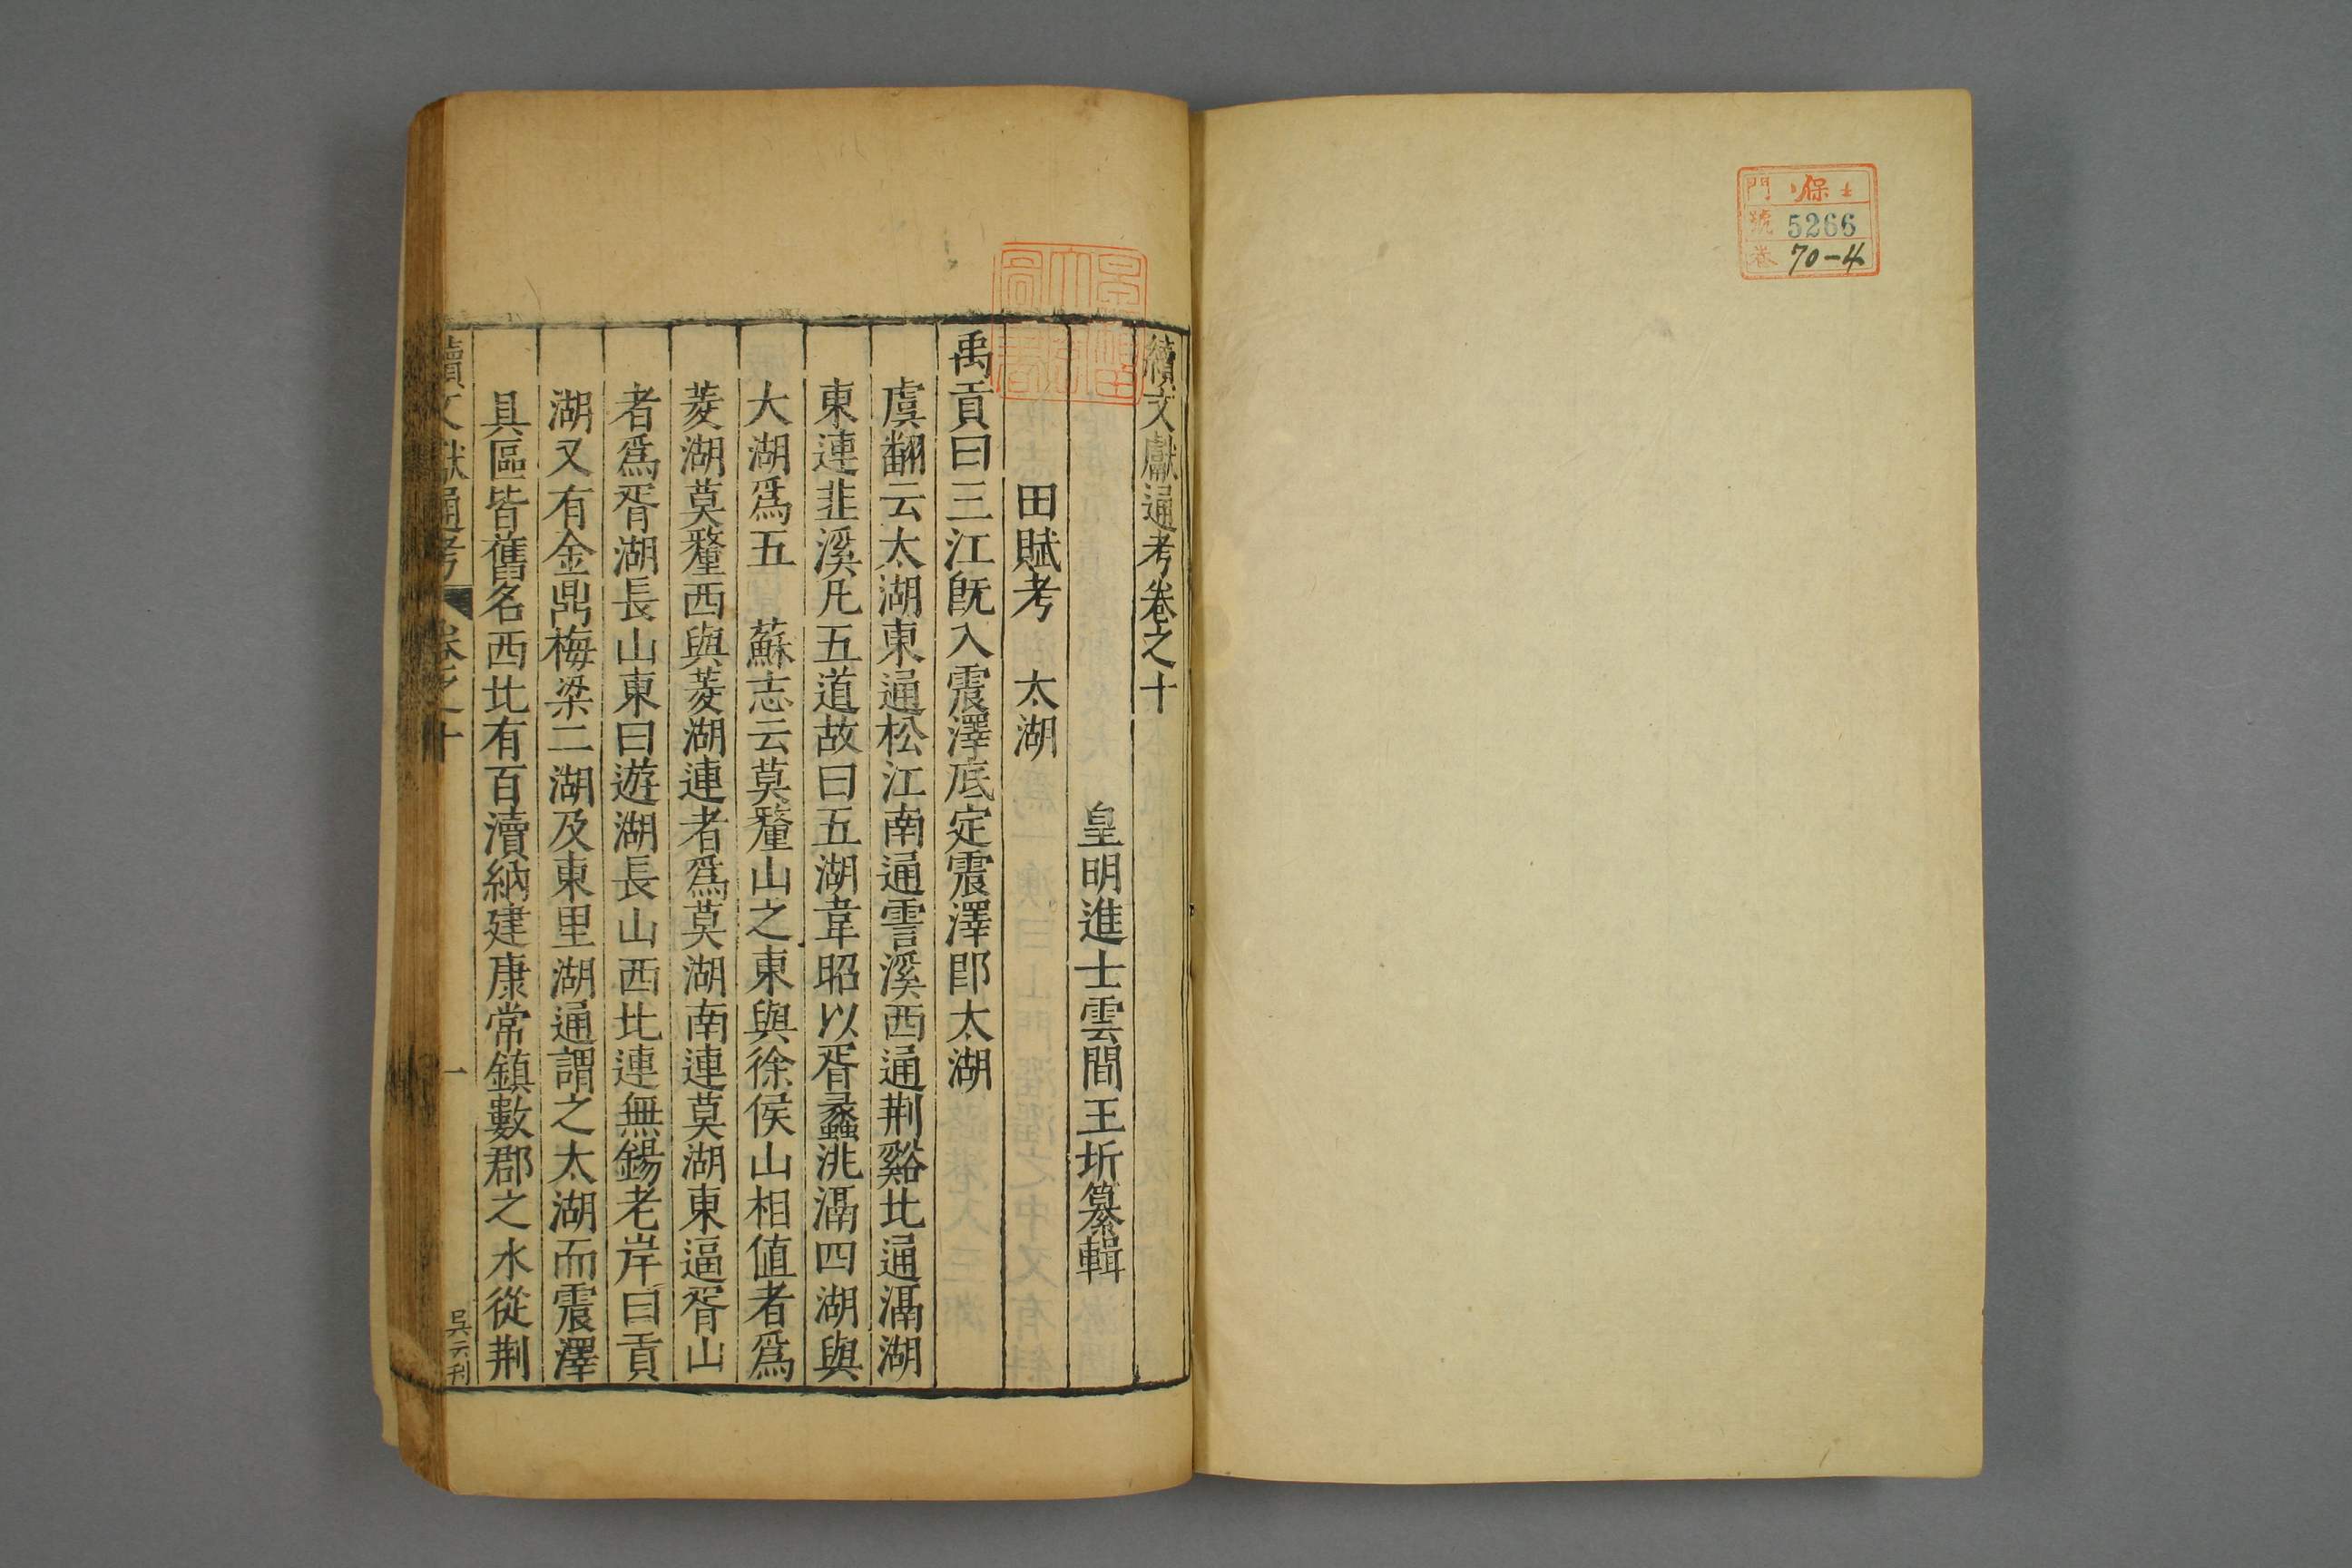 門 保
號 5266
卷 70-4
續文獻通考卷之十
皇明進士雲間王圻纂輯
田賦考　太湖
禹貢曰三江旣入震澤底定震澤卽太湖
虞翻云太湖東通松江南通霅溪西通荆谿北通滆湖
東連韭溪凡五道故曰五湖韋昭以胥蠡洮滆四湖與
大湖爲五　蘇志云莫釐山之東與徐侯山相値者爲
菱湖莫釐西與菱湖連者爲莫湖南連莫湖東逼胥山
者爲胥湖長山東曰遊湖長山西北連無錫老岸曰貢
湖又有金鼎梅梁二湖及東里湖通謂之太湖而震澤
具區皆舊名西北有百瀆納建康常鎮數郡之水從荆
續文獻通考 卷之十 一 吳云刋